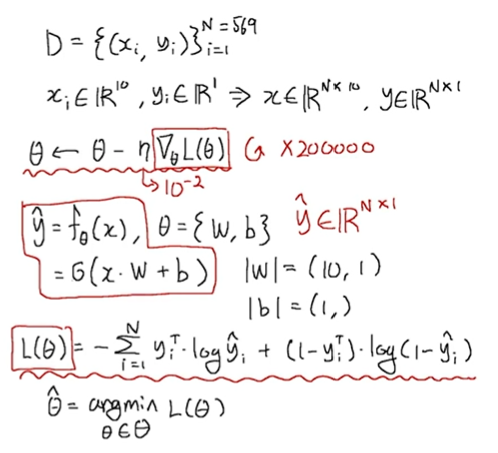 D = {(x_i, y_i)}_{i=1}^{N=569}
x_i ∈ ℝ^{10}, y_i ∈ ℝ^1 ⇒ x ∈ ℝ^{N×10}, y ∈ ℝ^{N×1}
θ ← θ - η ∇_θ L(θ) ↻ ×200000
↳ 10^{-2}
ŷ = f_θ(x), θ = {W, b} ŷ ∈ ℝ^{N×1}
= σ(x · W + b) |W| = (10, 1)
|b| = (1,)
L(θ) = - ∑_{i=1}^{N} y_i^T · log ŷ_i + (1 - y_i^T) · log(1 - ŷ_i)
θ̂ = argmin_{θ ∈ Θ} L(θ)